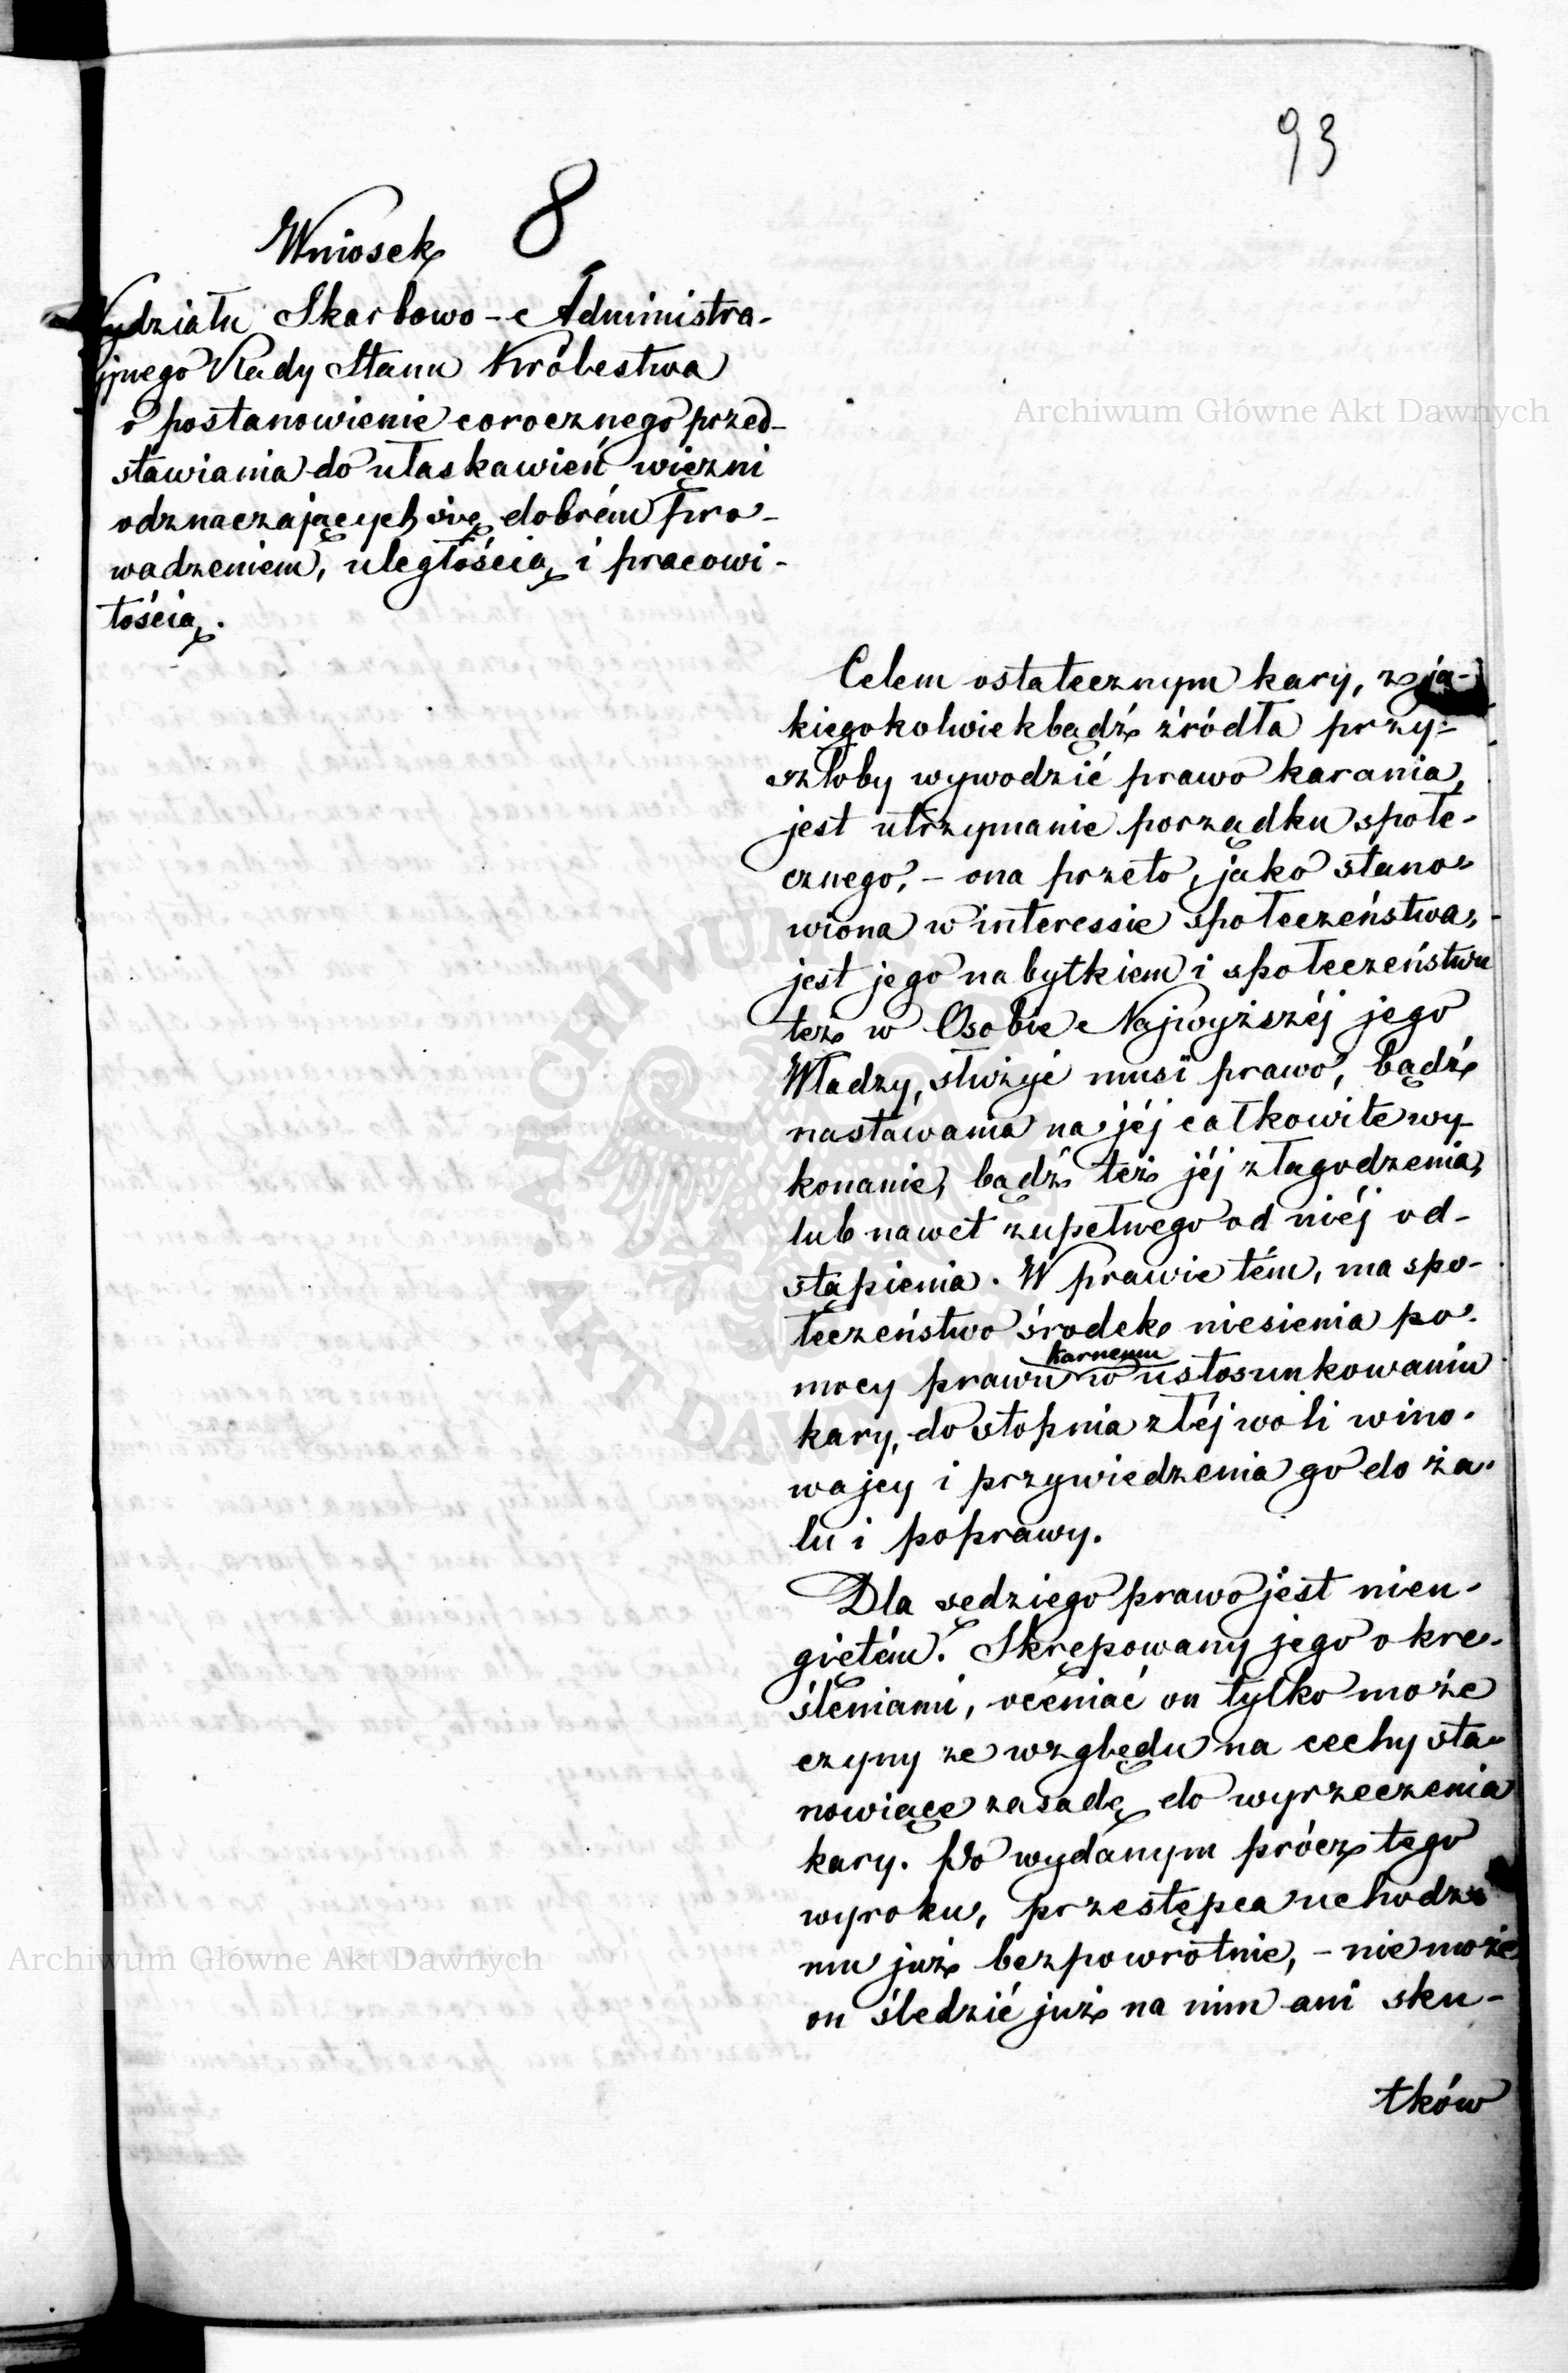 93
8
Wniosek
Wydziału Skarbowo-Administra-
yjnego Rady Stanu Królestwa
o postanowienie corocznego przed-
stawiania do ułaskawień więzni
odznaczających się dobrém pro-
wadzeniem, uległością i pracowi-
tością.
Celem ostatecznym kary, z ja-
kiegokolwiekbądź źródła przy-
szłoby wywodzić prawo karania,
jest utrzymanie porządku społe-
cznego, - ona przeto, jako stano-
wiona w interessie społeczeństwa,
jest jego nabytkiem i społeczeństwu
też w Osobie Najwyższéj jego
Władzy, służyć musi prawo, bądź
nastawania na jéj całkowite wy-
konanie, bądź też jéj złagodzenia,
lub nawet zupełnego od niéj od-
stąpienia. W prawie tém, ma spo-
łeczeństwo środek niesienia po-
karnemu
mocy prawu w ustosunkowaniu
kary, do stopnia złéj woli wino-
wajcy i przywiedzenia go do ża-
lu i poprawy.
Dla sędziego prawo jest nieu-
giętém. Skrępowany jego okre-
śleniami, oceniać on tylko może
czyny ze względu na cechy sta-
nowiące zasadę do wyrzeczenia
kary. Po wydanym prócz tego
wyroku, przestępca uchodzi
mu już bezpowrotnie, - nie może
on śledzić już na nim ani sku-
tków
Archiwum Główne Akt Dawnych
Archiwum Główne Akt Dawnych
ARCHIWUM
AKT DAWNYCH